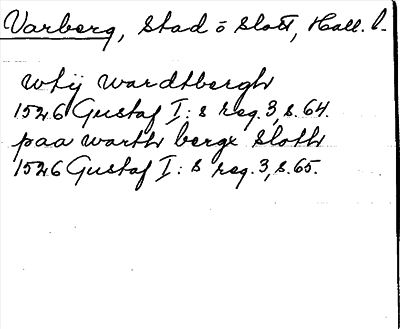 Varberg, Stad o Slott, Hall. l.
wtij wardtbergh
1526 Gustaf I: s reg. 3, s. 64.
paa warth bergx Sloth
1526 Gustaf I: s reg. 3, s. 65.